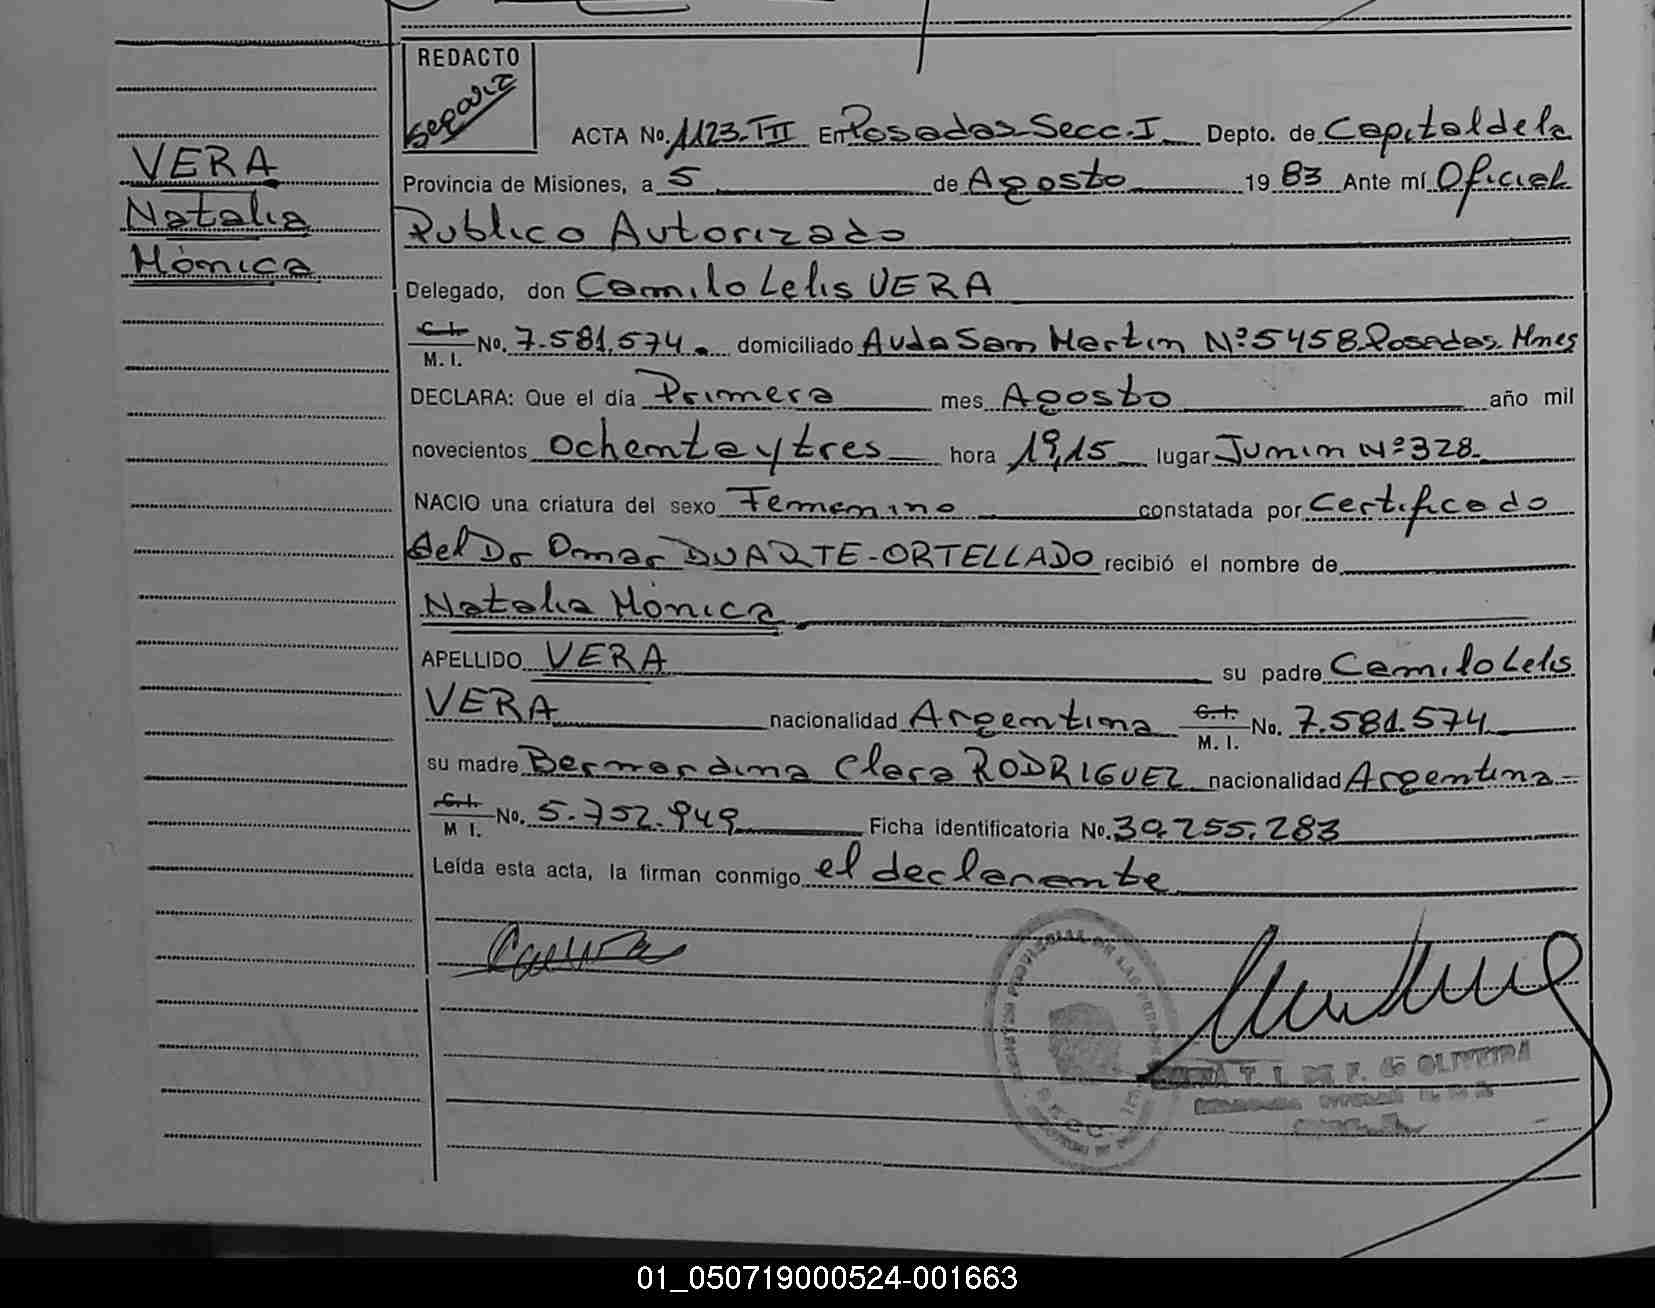 REDACTO
ACTA No. 1123-TII En Posadas Secc. I Depto. de Capital de la
VERA
Provincia de Misiones, a 5 de Agosto 19 83 Ante mí Oficial
Natalia
Publico Autorizado
Mónica
Delegado, don Camilo Lelis VERA
C. I.
M. I. No. 7.581.574. domiciliado Avda San Martin Nº 5458 Posadas Mnes
DECLARA: Que el día Primero mes Agosto año mil
novecientos ochenta y tres hora 19,15 lugar Junin Nº 328
NACIO una criatura del sexo Femenino constatada por Certificado
del Dr Omar DUARTE-ORTELLADO recibió el nombre de
Natalia Mónica
APELLIDO VERA su padre Camilo Lelis
VERA nacionalidad Argentina C. I. M. I. No. 7.581.574
su madre Bernardina Clara RODRIGUEZ nacionalidad Argentina
C. I. M I. No. 5.752.949 Ficha identificatoria No. 30.255.283
Leída esta acta, la firman conmigo el declarante
T. I. DE F. de OLIVEIRA
01_050719000524-001663